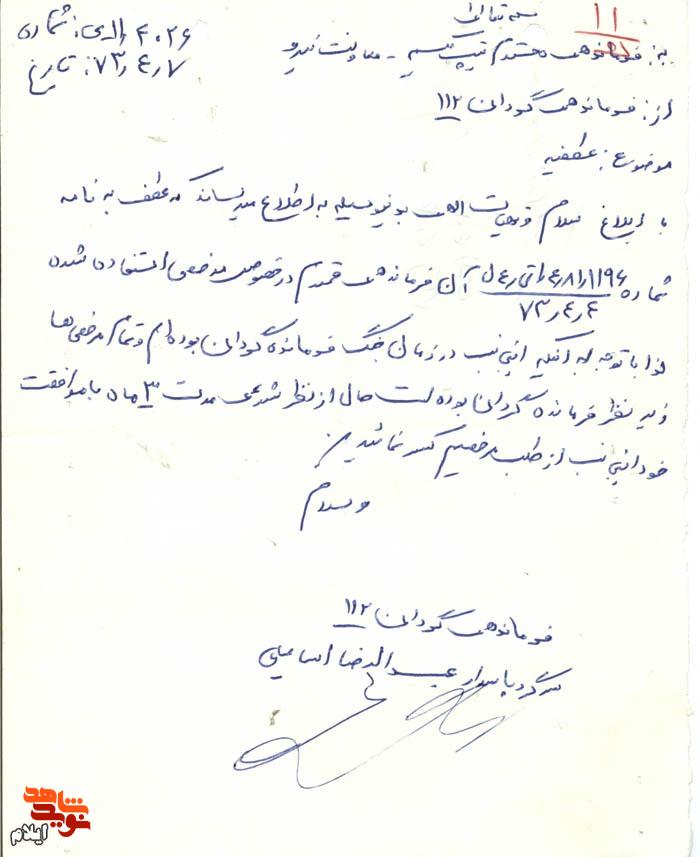 بسمه تعالی
۱۱
شماره: ۴۰۲۶/الدی
تاریخ: ۷۳/۴/۷
به: فرماندهی محترم تیپ یکم - معاونت نیرو
از: فرماندهی گردان ۱۱۲
موضوع: عطفیه
با ابلاغ سلام و تحیات الهی بدینوسیله به اطلاع میرساند که عطف به نامه
شماره ۷۳/۴/۴ آن فرماندهی محترم در خصوص مرخصی استفاده شده
لذا با توجه به اینکه اینجانب در زمان جنگ فرمانده گردان بوده ام و تمام مرخصی ها
زیر نظر فرمانده گردان بوده است حال از نظر شرعی مدت ۳ ماه با موافقت
خود اینجانب از طلب مرخصیم کسر نمائید
والسلام
فرماندهی گردان ۱۱۲
سرگرد پاسدار عبدالرضا اسماعیلی
نوید شاهد
ایلام